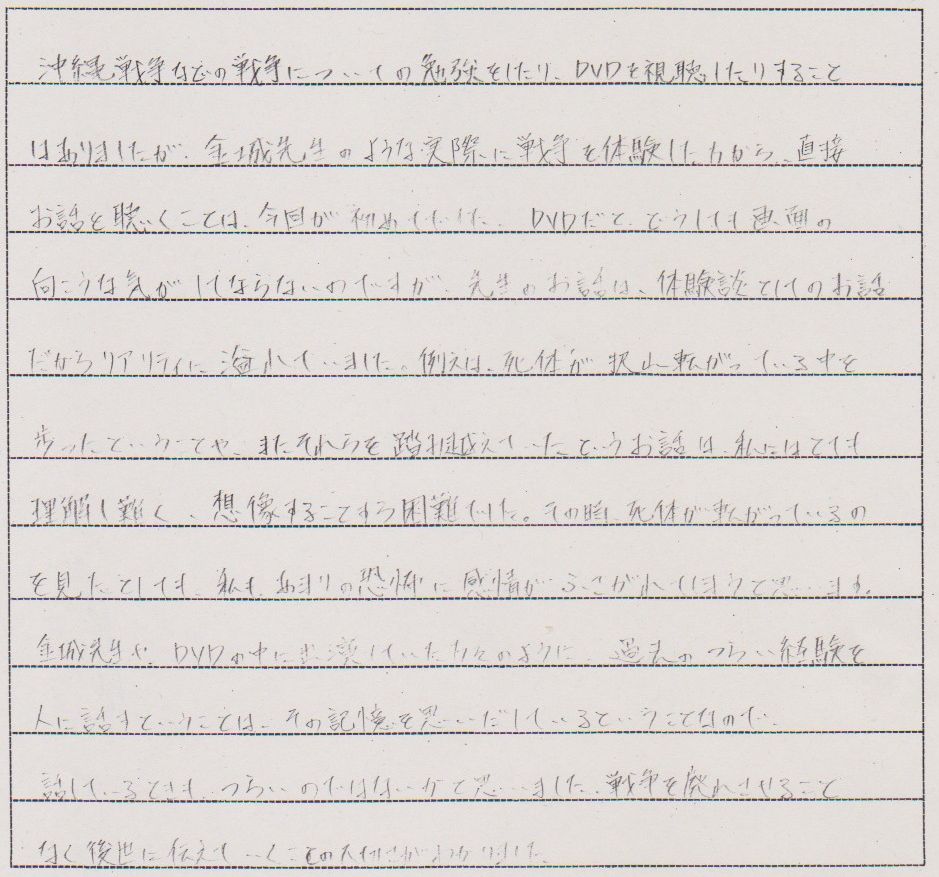 沖縄戦争などの戦争についての勉強をしたり、DVDを視聴したりすること
はありましたが、金城先生のような実際に戦争を体験した方から、直接
お話を聴くことは、今回が初めてでした。DVDだと、どうしても画面の
向こうな気がしてならないのですが、先生のお話は、体験談としてのお話
だからリアリティに溢れていました。例えば、死体が沢山転がっている中を
歩ったということや、またそれらを踏み越えていたというお話は、私にはとても
理解し難く、想像することすら困難でした。その時、死体が転がっているの
を見たとしても、私も、あまりの恐怖に感情がふさがれてしまうと思います。
金城先生や、DVDの中に出演していた方々のように、過去のつらい経験を
人に話すということは、その記憶を思いだしているということなので、
話しているときも、つらいのではないかと思いました。戦争を廃れさせること
なく後世に伝えていくことの大切さがわかりました。